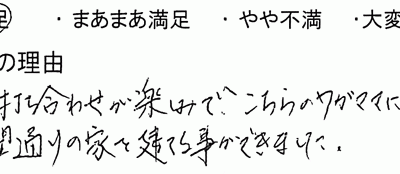 足 ・まあまあ満足 ・やや不満 ・大変
の理由
打ち合わせが楽しみで、こちらのワガママに
通りの家を建てる事ができました。